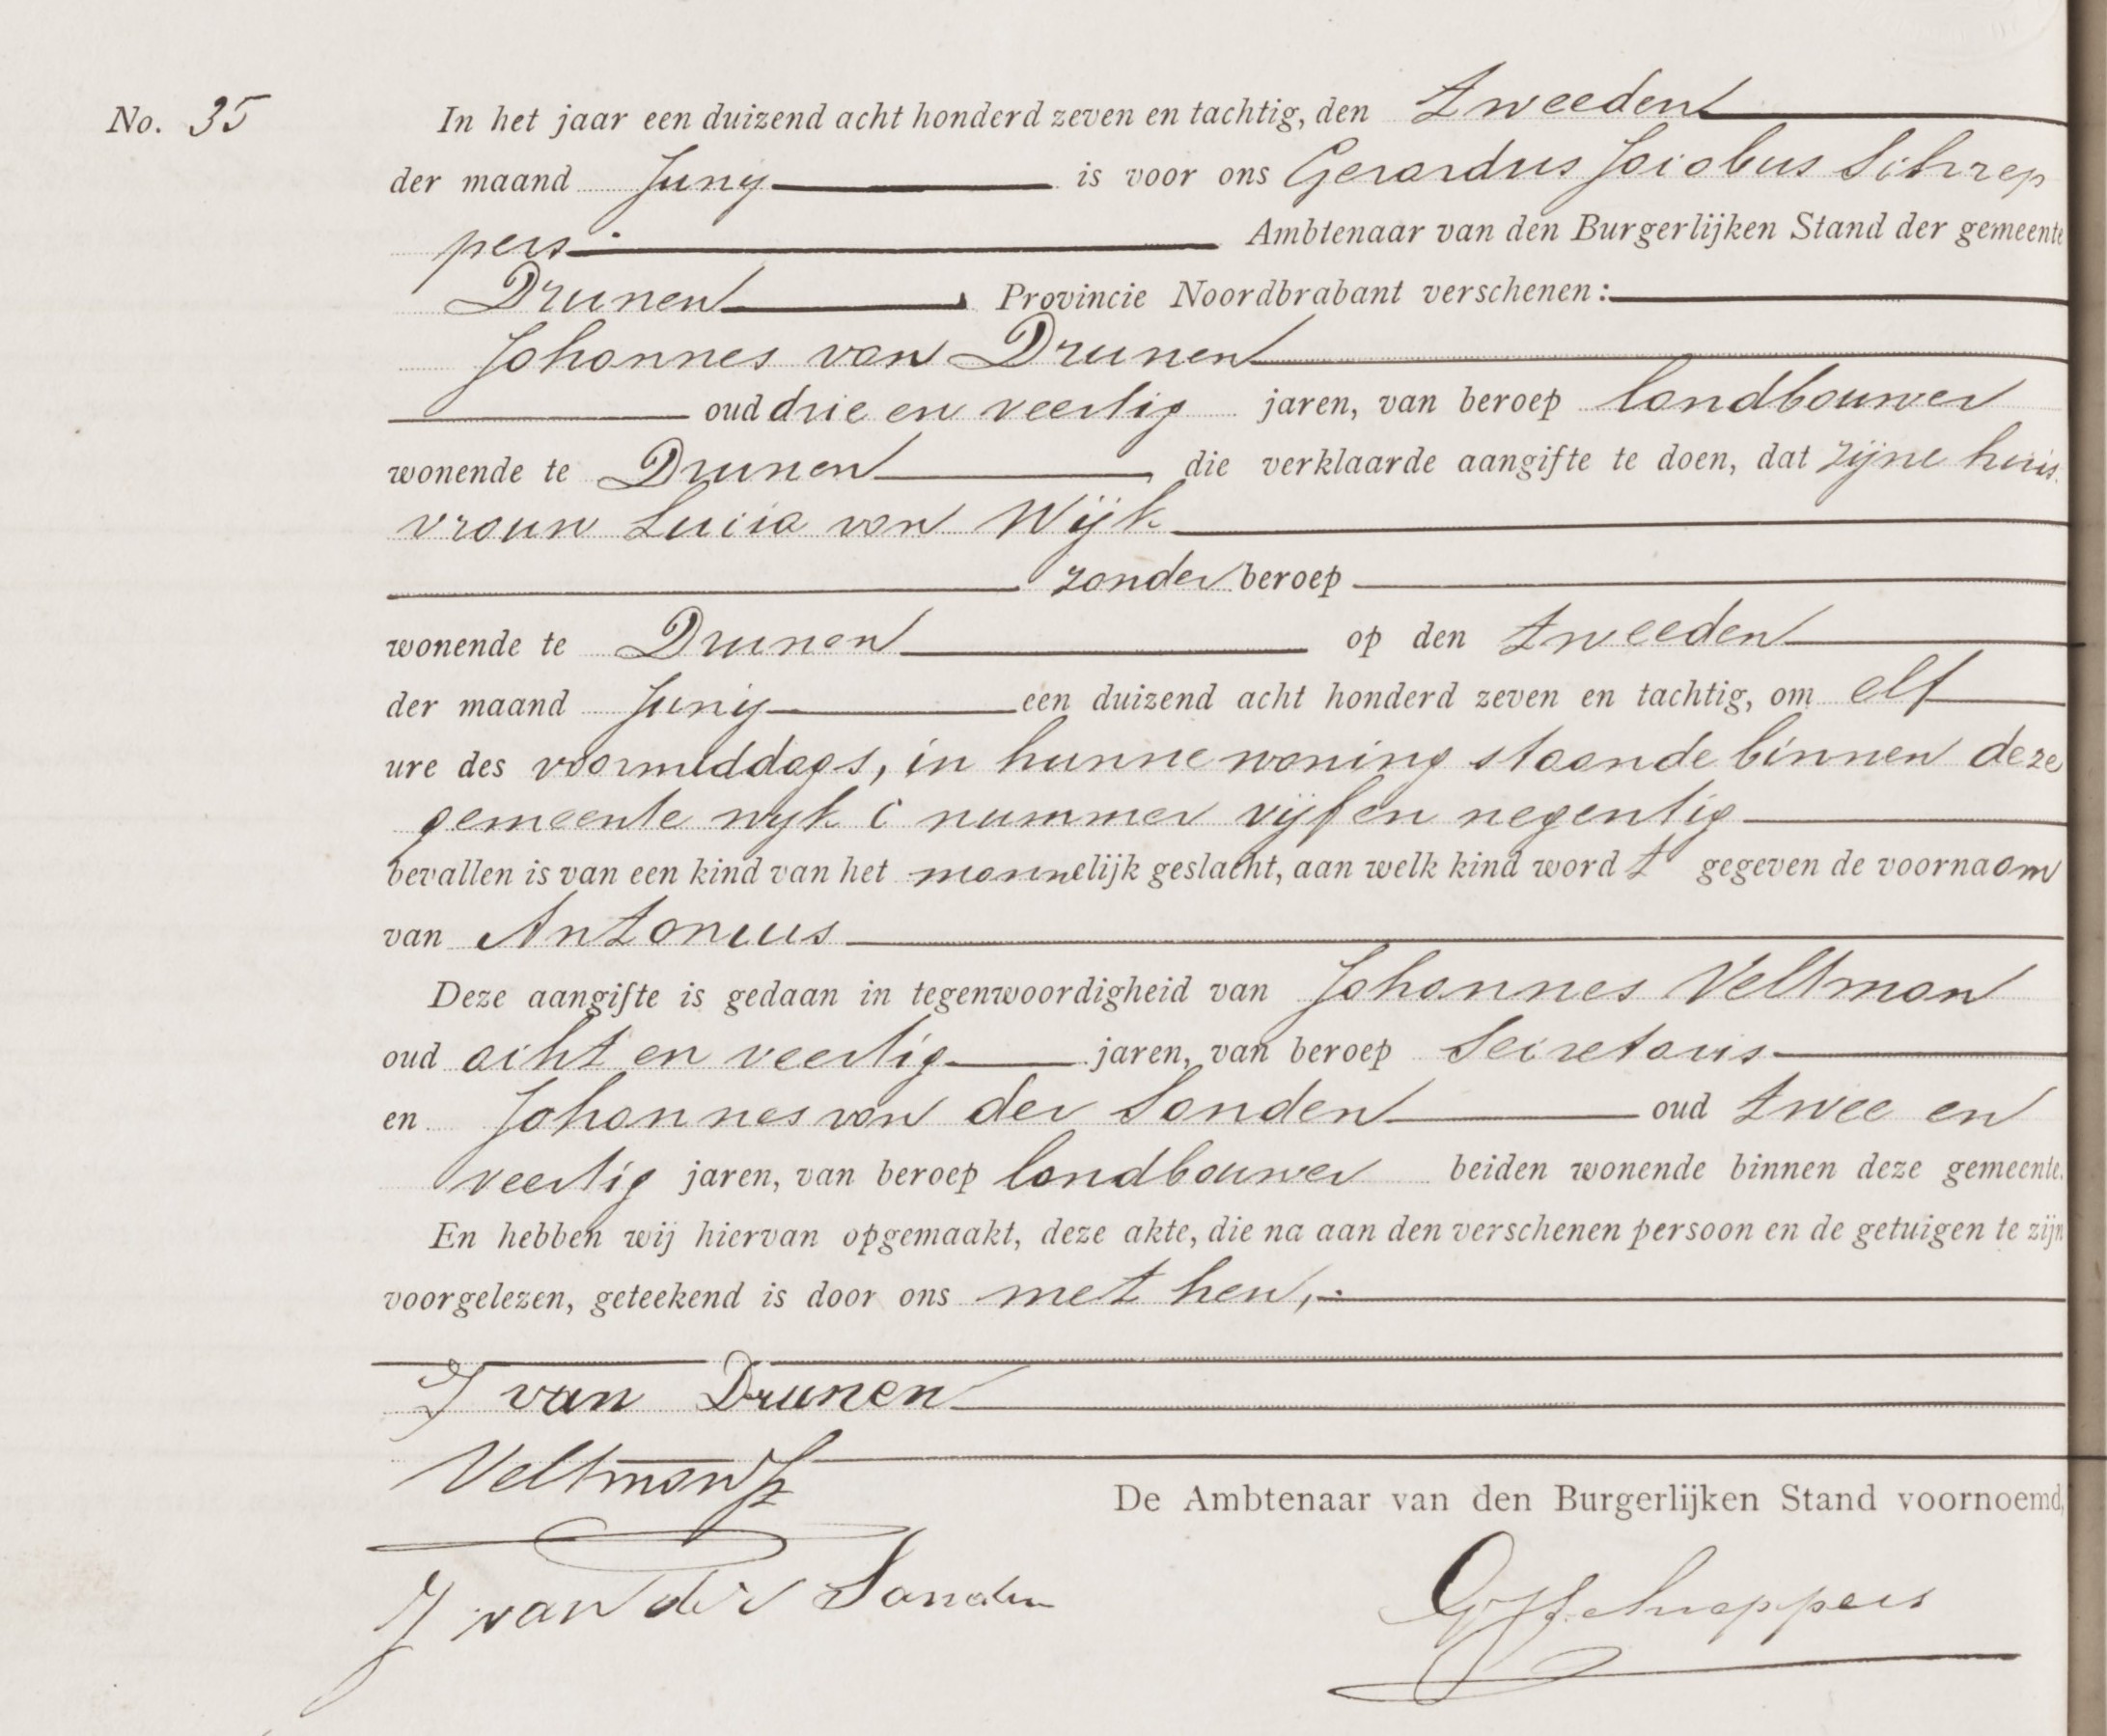 No. 35 In het jaar een duizend acht honderd zeven en tachtig, den tweeden
der maand Juny is voor ons Gerardus Jacobus Schrep
pers Ambtenaar van den Burgerlijken Stand der gemeente
Drunen Provincie Noordbrabant verschenen:
Johannes van Drunen
oud drie en veertig jaren, van beroep landbouwer
wonende te Drunen die verklaarde aangifte te doen, dat zijne huis
vrouw Lucia van Wijk
zonder beroep
wonende te Drunen op den tweeden
der maand Juny een duizend acht honderd zeven en tachtig, om elf
ure des voormiddags, in hunne woning staande binnen deze
gemeente wyk C nummer vijf en negentig
bevallen is van een kind van het mannelijk geslacht, aan welk kind word t gegeven de voornaam
van Antonius
Deze aangifte is gedaan in tegenwoordigheid van Johannes Veltman
oud acht en veertig jaren, van beroep Secretaris
en Johannes van der Sanden oud twee en
veertig jaren, van beroep landbouwer beiden wonende binnen deze gemeente.
En hebben wij hiervan opgemaakt, deze akte, die na aan den verschenen persoon en de getuigen te zijn
voorgelezen, geteekend is door ons met hen,
J van Drunen
Veltman
De Ambtenaar van den Burgerlijken Stand voornoemd,
J van der Sanden
GJSchreppers